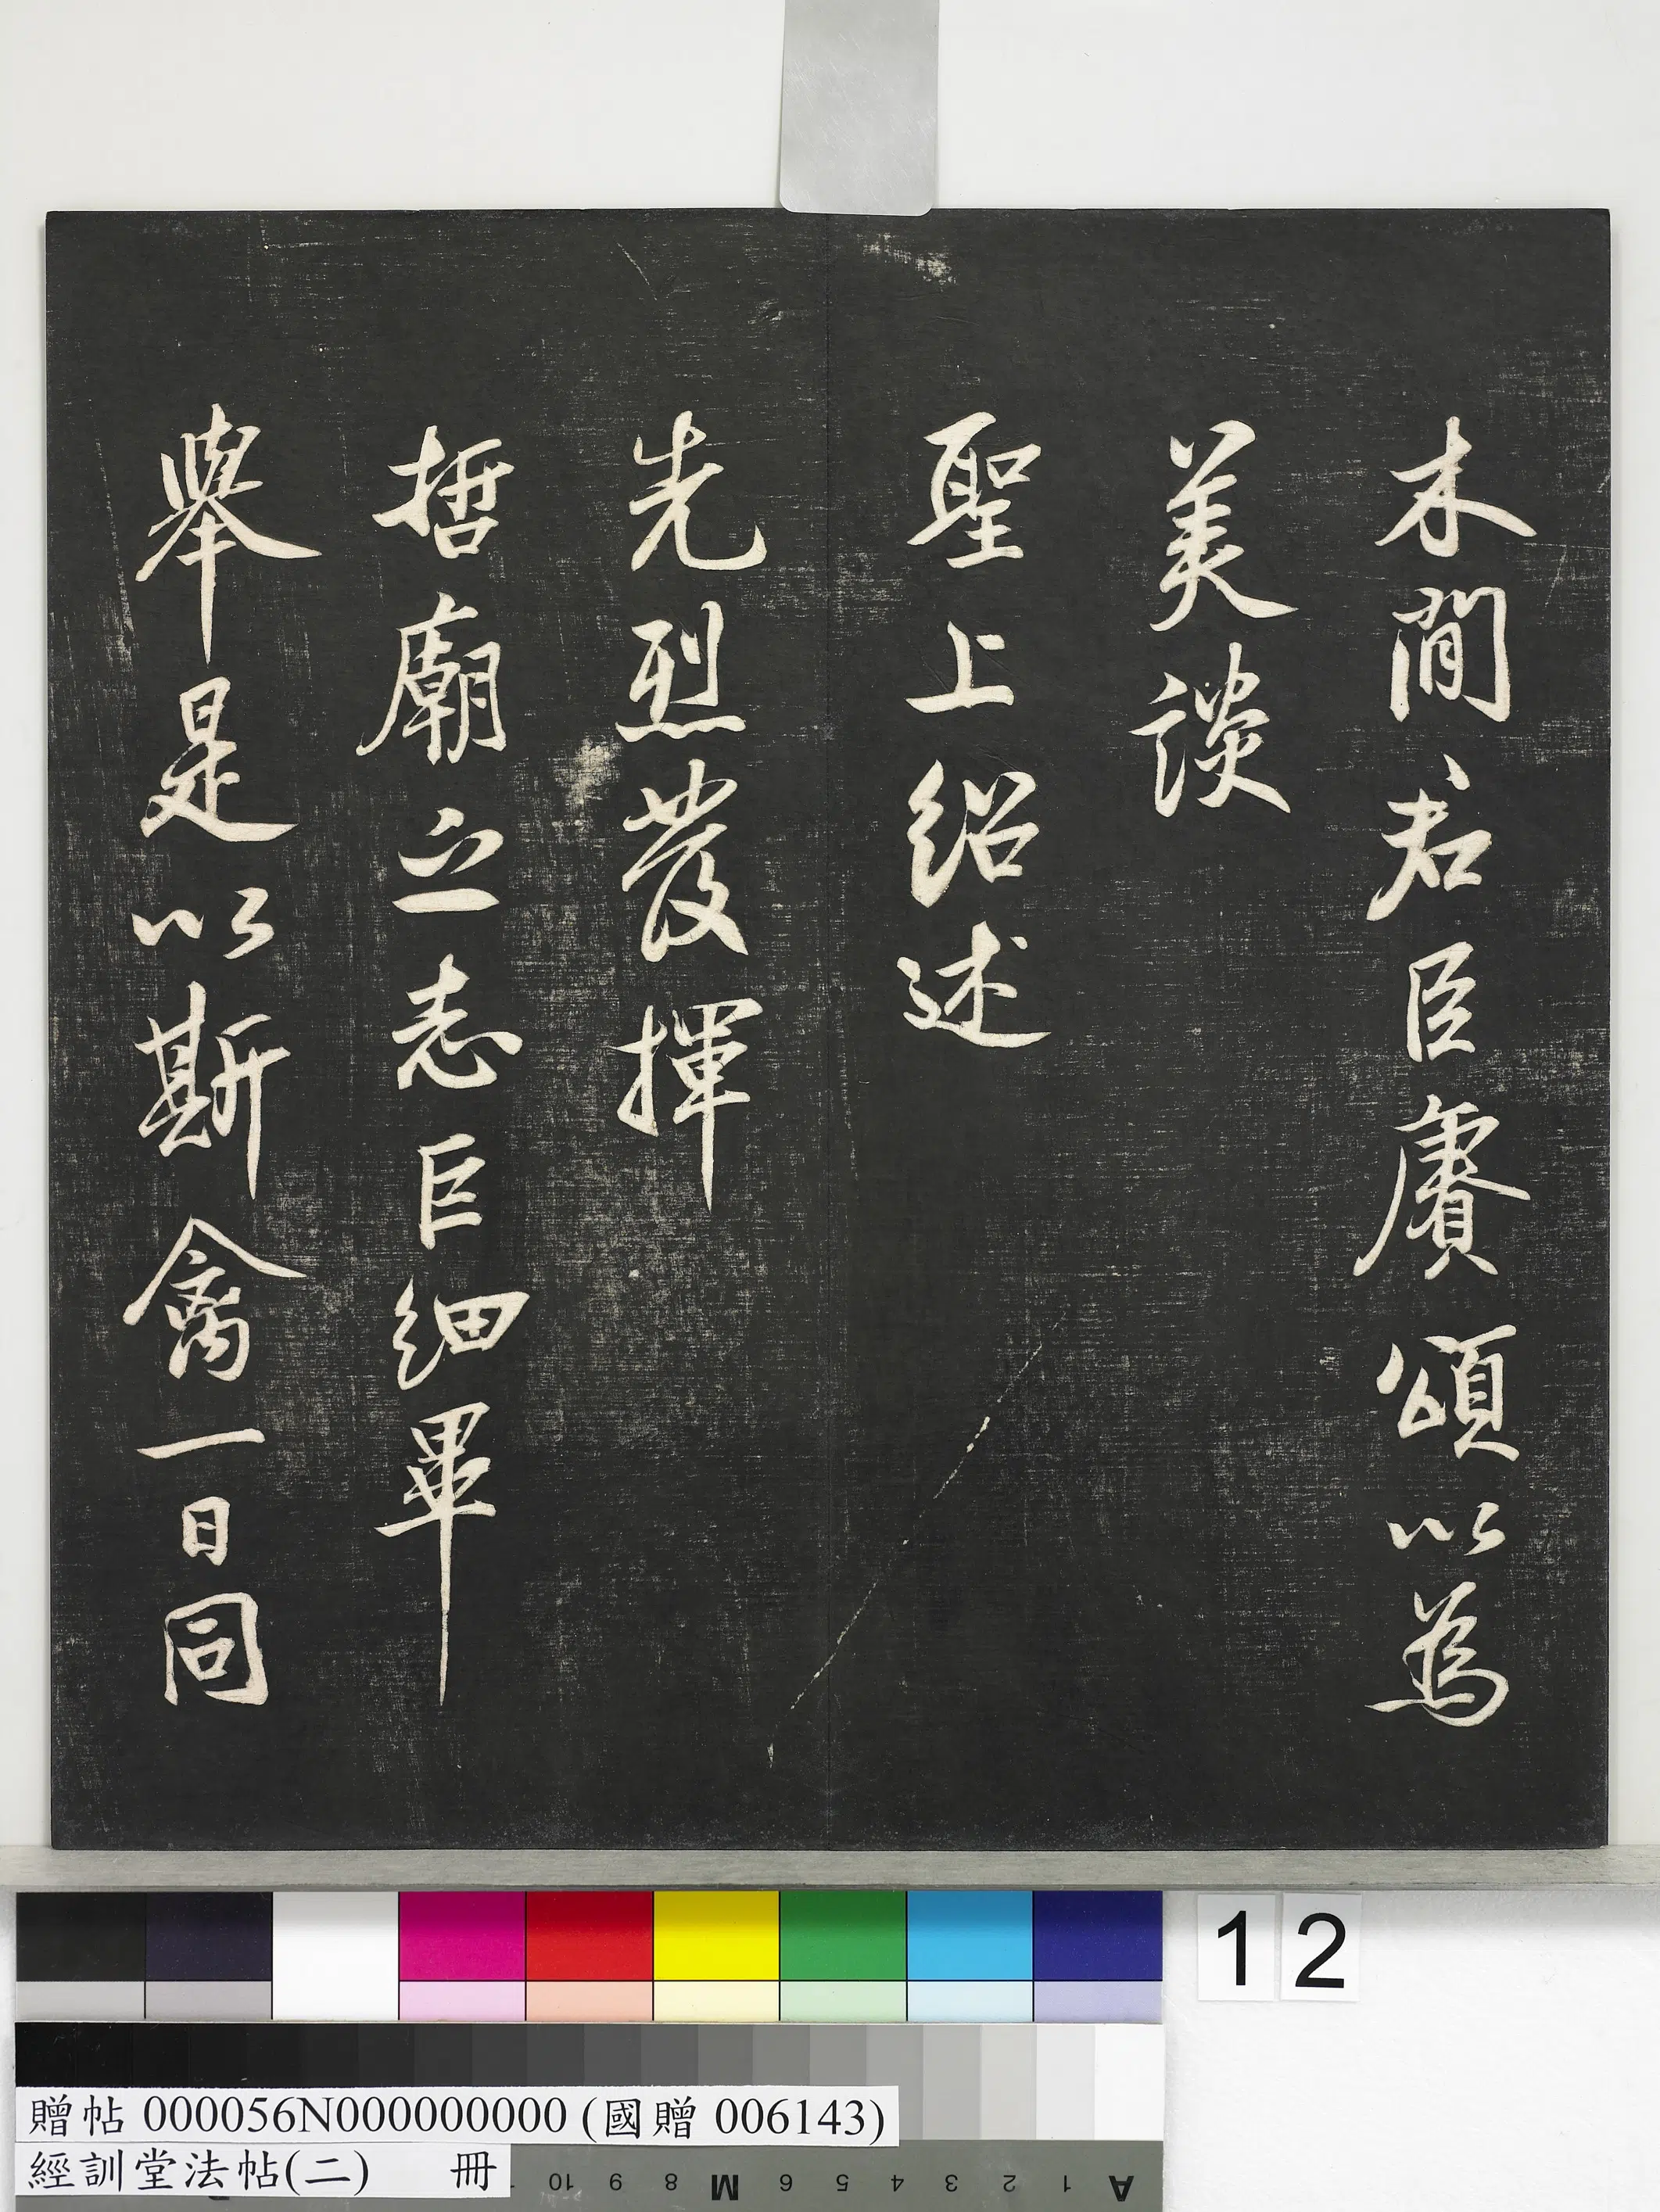 木間君臣賡頌以為
美談
聖上紹述
先烈發揮
哲廟之志巨細畢
舉是以斯禽一日同
12
贈帖 000056N000000000 (國贈 006143)
經訓堂法帖(二) 冊
10 9 8 M 6 5 4 3 2 1 A